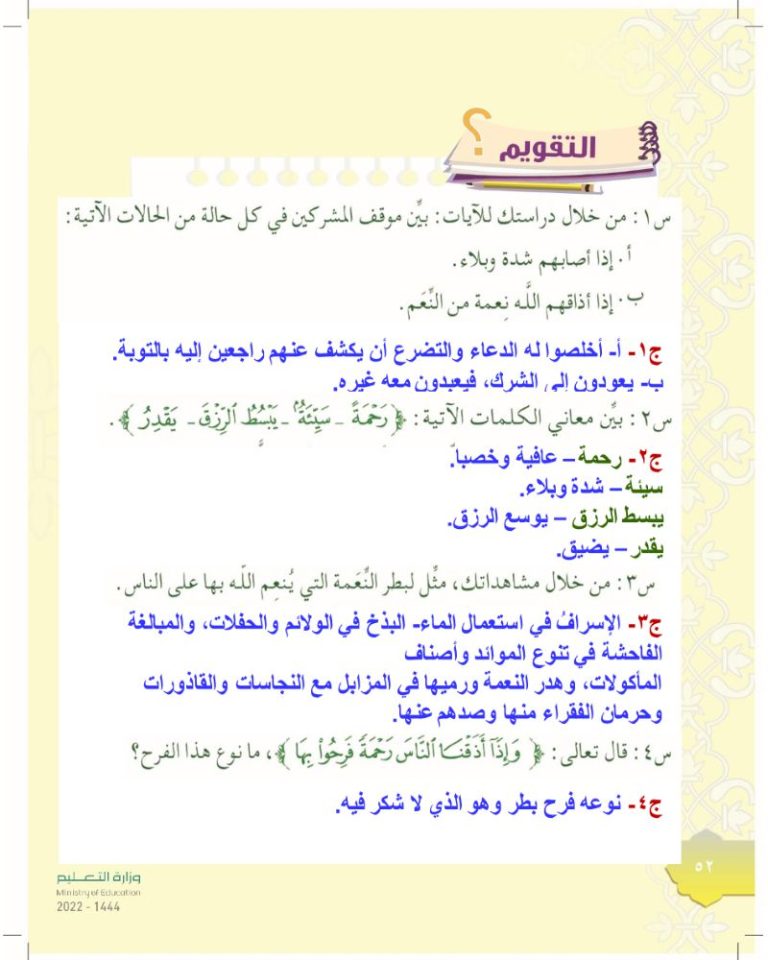 التقويم
س١: من خلال دراستك للآيات: بيِّن موقف المشركين في كل حالة من الحالات الآتية:
أ. إذا أصابهم شدة وبلاء.
ب. إذا أذاقهم اللَّه نِعمة من النِّعَم.
ج١- أ- أخلصوا له الدعاء والتضرع أن يكشف عنهم راجعين إليه بالتوبة.
ب- يعودون إلى الشرك، فيعبدون معه غيره.
س٢: بيِّن معاني الكلمات الآتية: ﴿ رَحْمَةً - سَيِّئَةٌ - يَبْسُطُ ٱلرِّزْقَ - يَقْدِرُ ﴾.
ج٢- رحمة – عافية وخصباً.
سيئة – شدة وبلاء.
يبسط الرزق – يوسع الرزق.
يقدر – يضيق.
س٣: من خلال مشاهداتك، مثِّل لبطر النِّعَمة التي يُنعِم اللَّه بها على الناس.
ج٣- الإسرافُ في استعمال الماء- البذخ في الولائم والحفلات، والمبالغة
الفاحشة في تنوع الموائد وأصناف
المأكولات، وهدر النعمة ورميها في المزابل مع النجاسات والقاذورات
وحرمان الفقراء منها وصدهم عنها.
س٤: قال تعالى: ﴿ وَإِذَآ أَذَقْنَا ٱلنَّاسَ رَحْمَةً فَرِحُوا۟ بِهَا ﴾، ما نوع هذا الفرح؟
ج٤- نوعه فرح بطر وهو الذي لا شكر فيه.
٥٢
وزارة التعليم
Ministry of Education
2022 - 1444